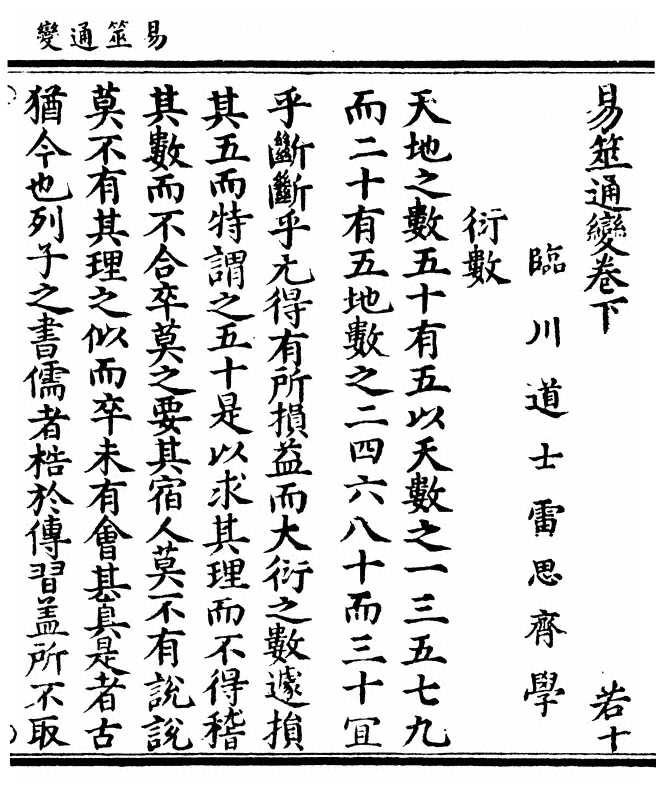 易筮通變
易筮通變卷下
若十
臨川道士雷思齊學
衍數
天地之數五十有五以天數之一三五七九
而二十有五地數之二四六八十而三十冝
乎斷斷乎无得有所損益而大衍之數遽損
其五而特謂之五十是以求其理而不得稽
其數而不合卒莫之要其宿人莫不有說說
莫不有其理之似而卒未有會甚真是者古
猶今也列子之書儒者梏於傳習盖所不取